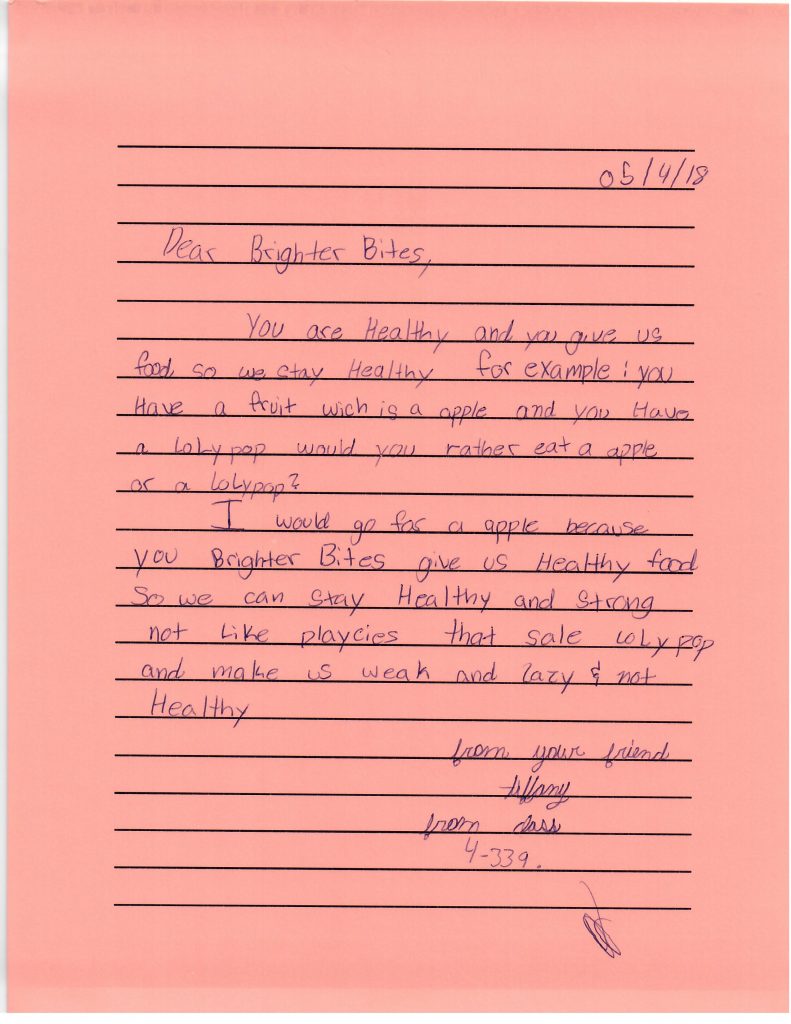 05/4/18
Dear Brighter Bites,
You are Healthy and you give us
food so we stay Healthy for example : you
Have a fruit wich is a apple and you Have
a LoLy pop would you rather eat a apple
or a LoLypop?
I would go for a apple because
you Brighter Bites give us Healthy food
So we can stay Healthy and strong
not Like playcies that sale LoLy pop
and make us weak and lazy & not
Healthy
from your friend
tiffany
from class
4-339.